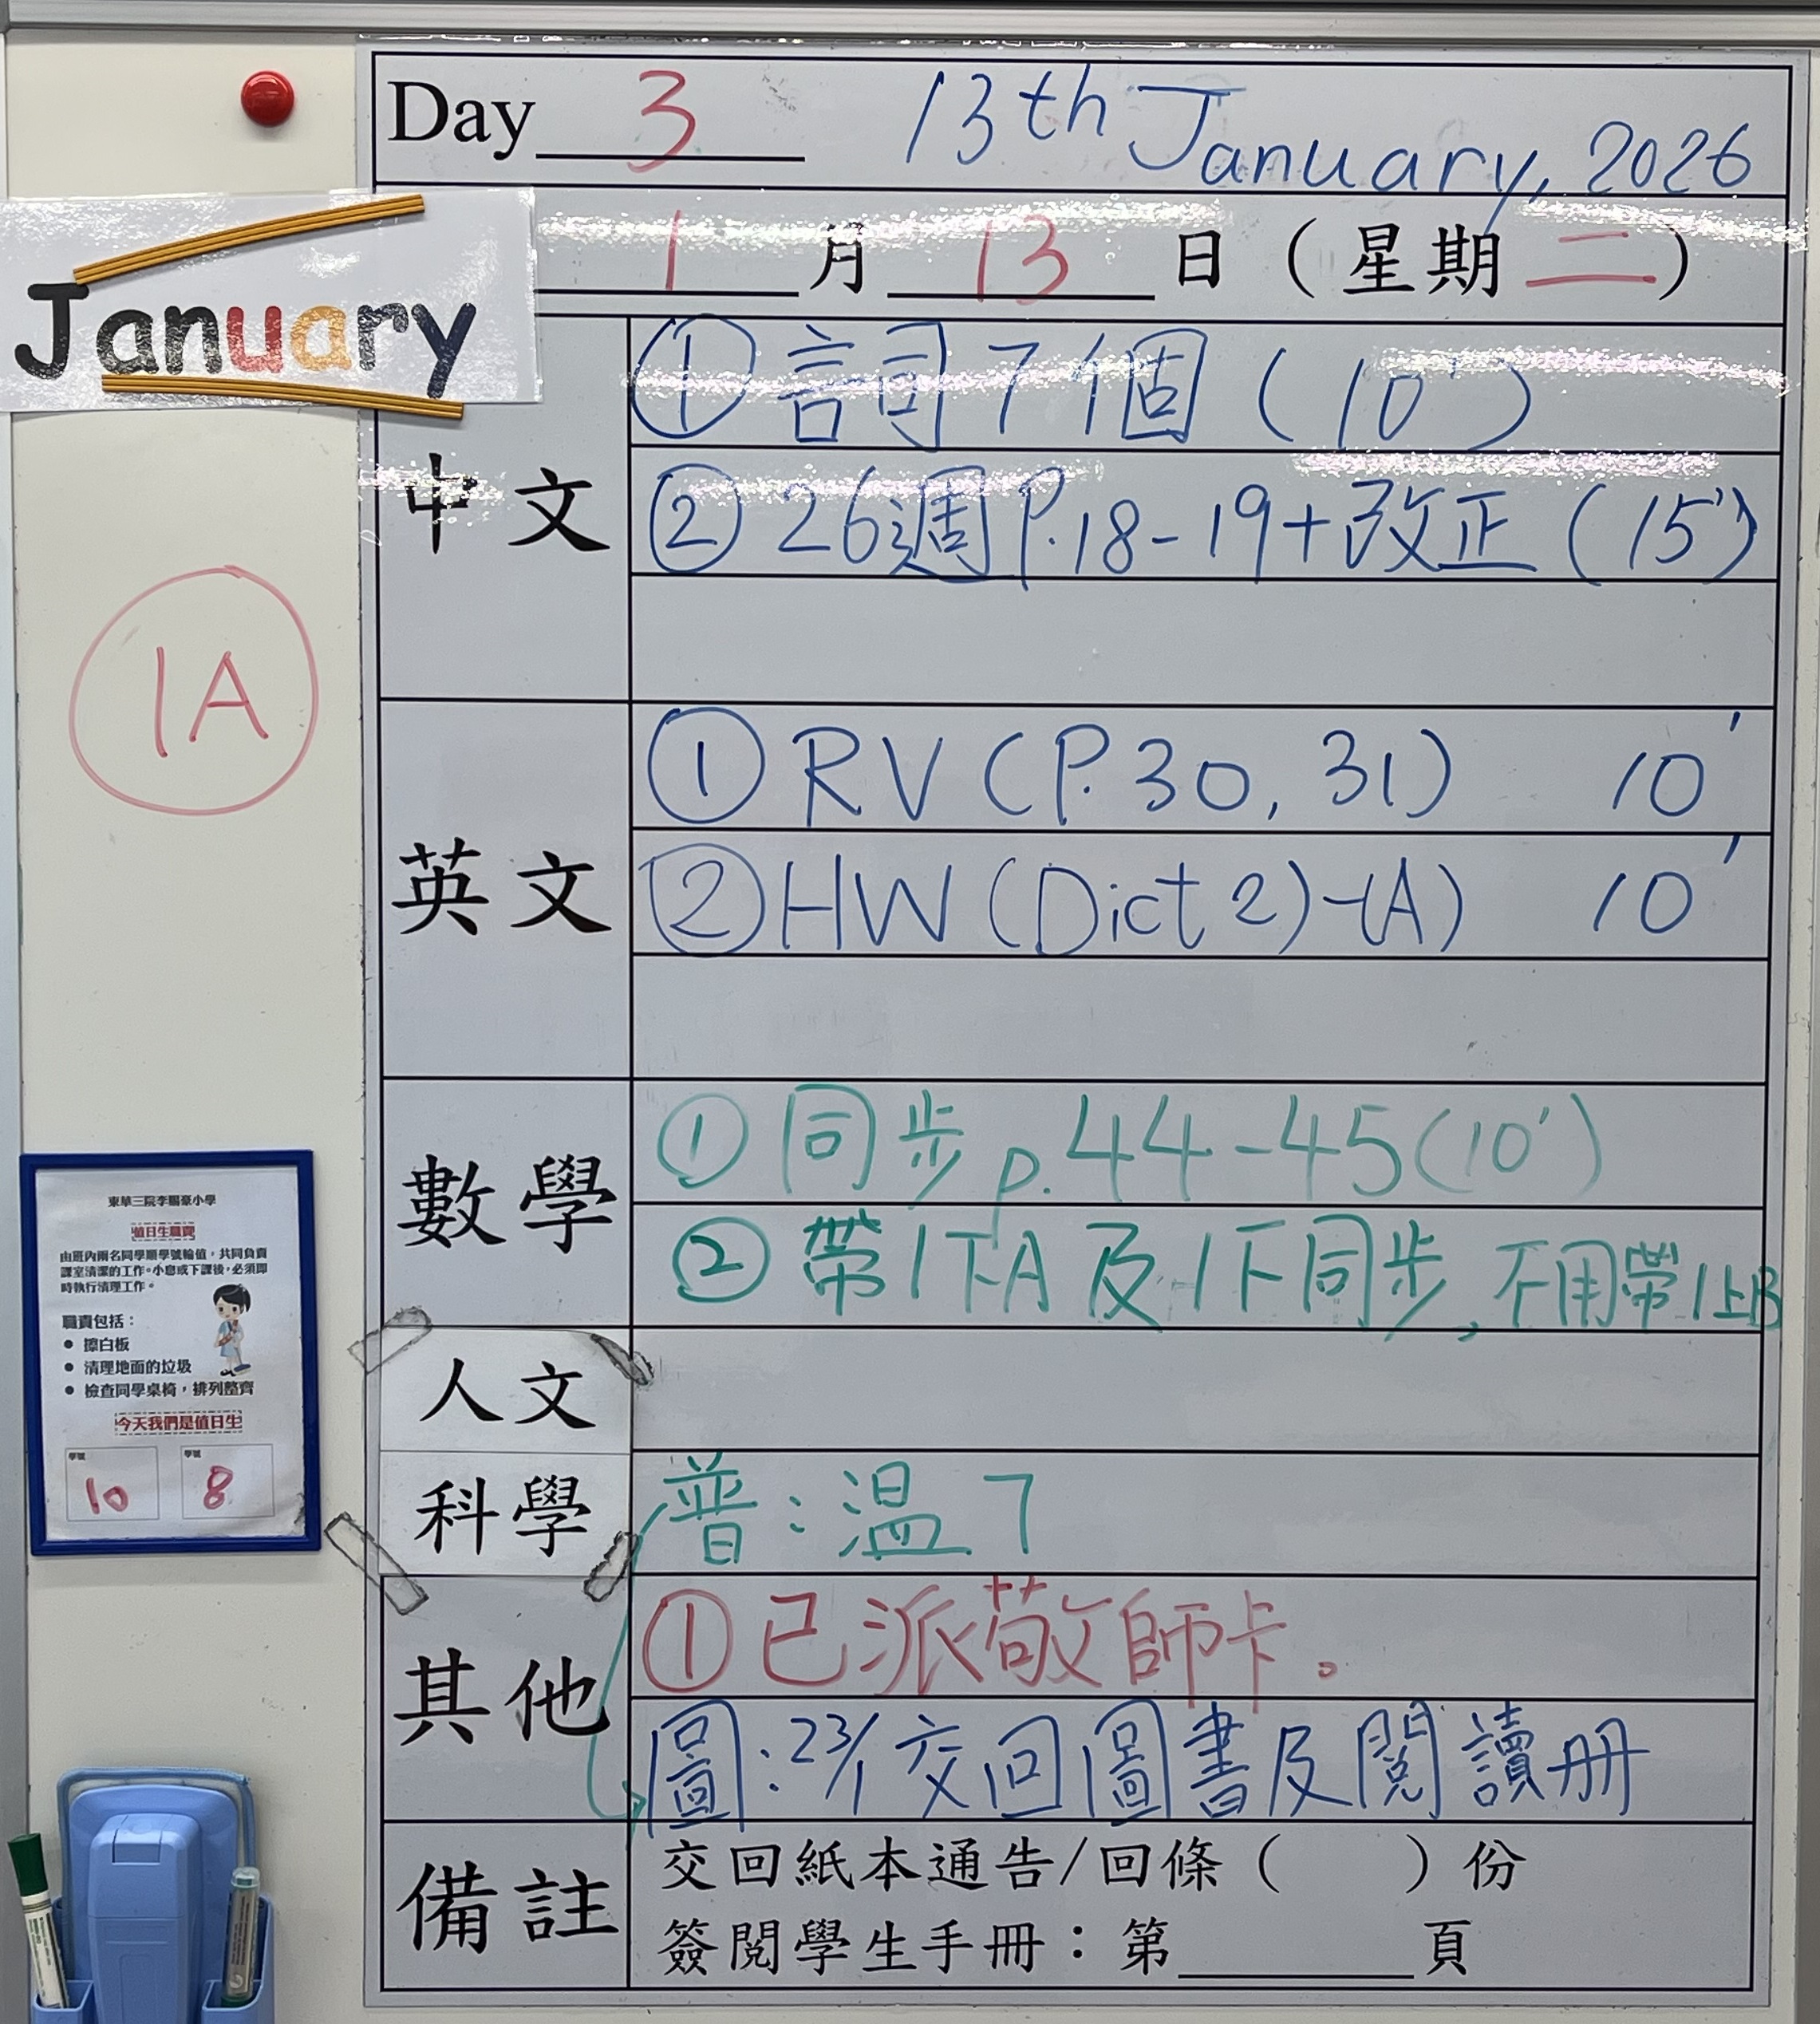 Day 3 13th January, 2026
January
1 月 13 日（星期二）
中文
① 詞7 1個（10'）
② 26週 P.18-19+改正（15'）
1A
英文
① RV (P.30, 31) 10'
② HW (Dict 2)-(A) 10'
數學
① 同步 p.44-45(10')
② 帶1下A及1下同步，不用帶1上B
人文
科學
普：温7
其他
① 已派敬師卡。
圖：23/1 交回圖書及閱讀册
備註
交回紙本通告/回條（ ）份
簽閱學生手冊：第 頁
東華三院李賜豪小學
值日生職責
由班內兩名同學順學號輪值，共同負責
課室清潔的工作。小息或下課後，必須即
時執行清理工作。
職責包括：
● 擦白板
● 清理地面的垃圾
● 檢查同學桌椅，排列整齊
今天我們是值日生
學號 學號
10 8